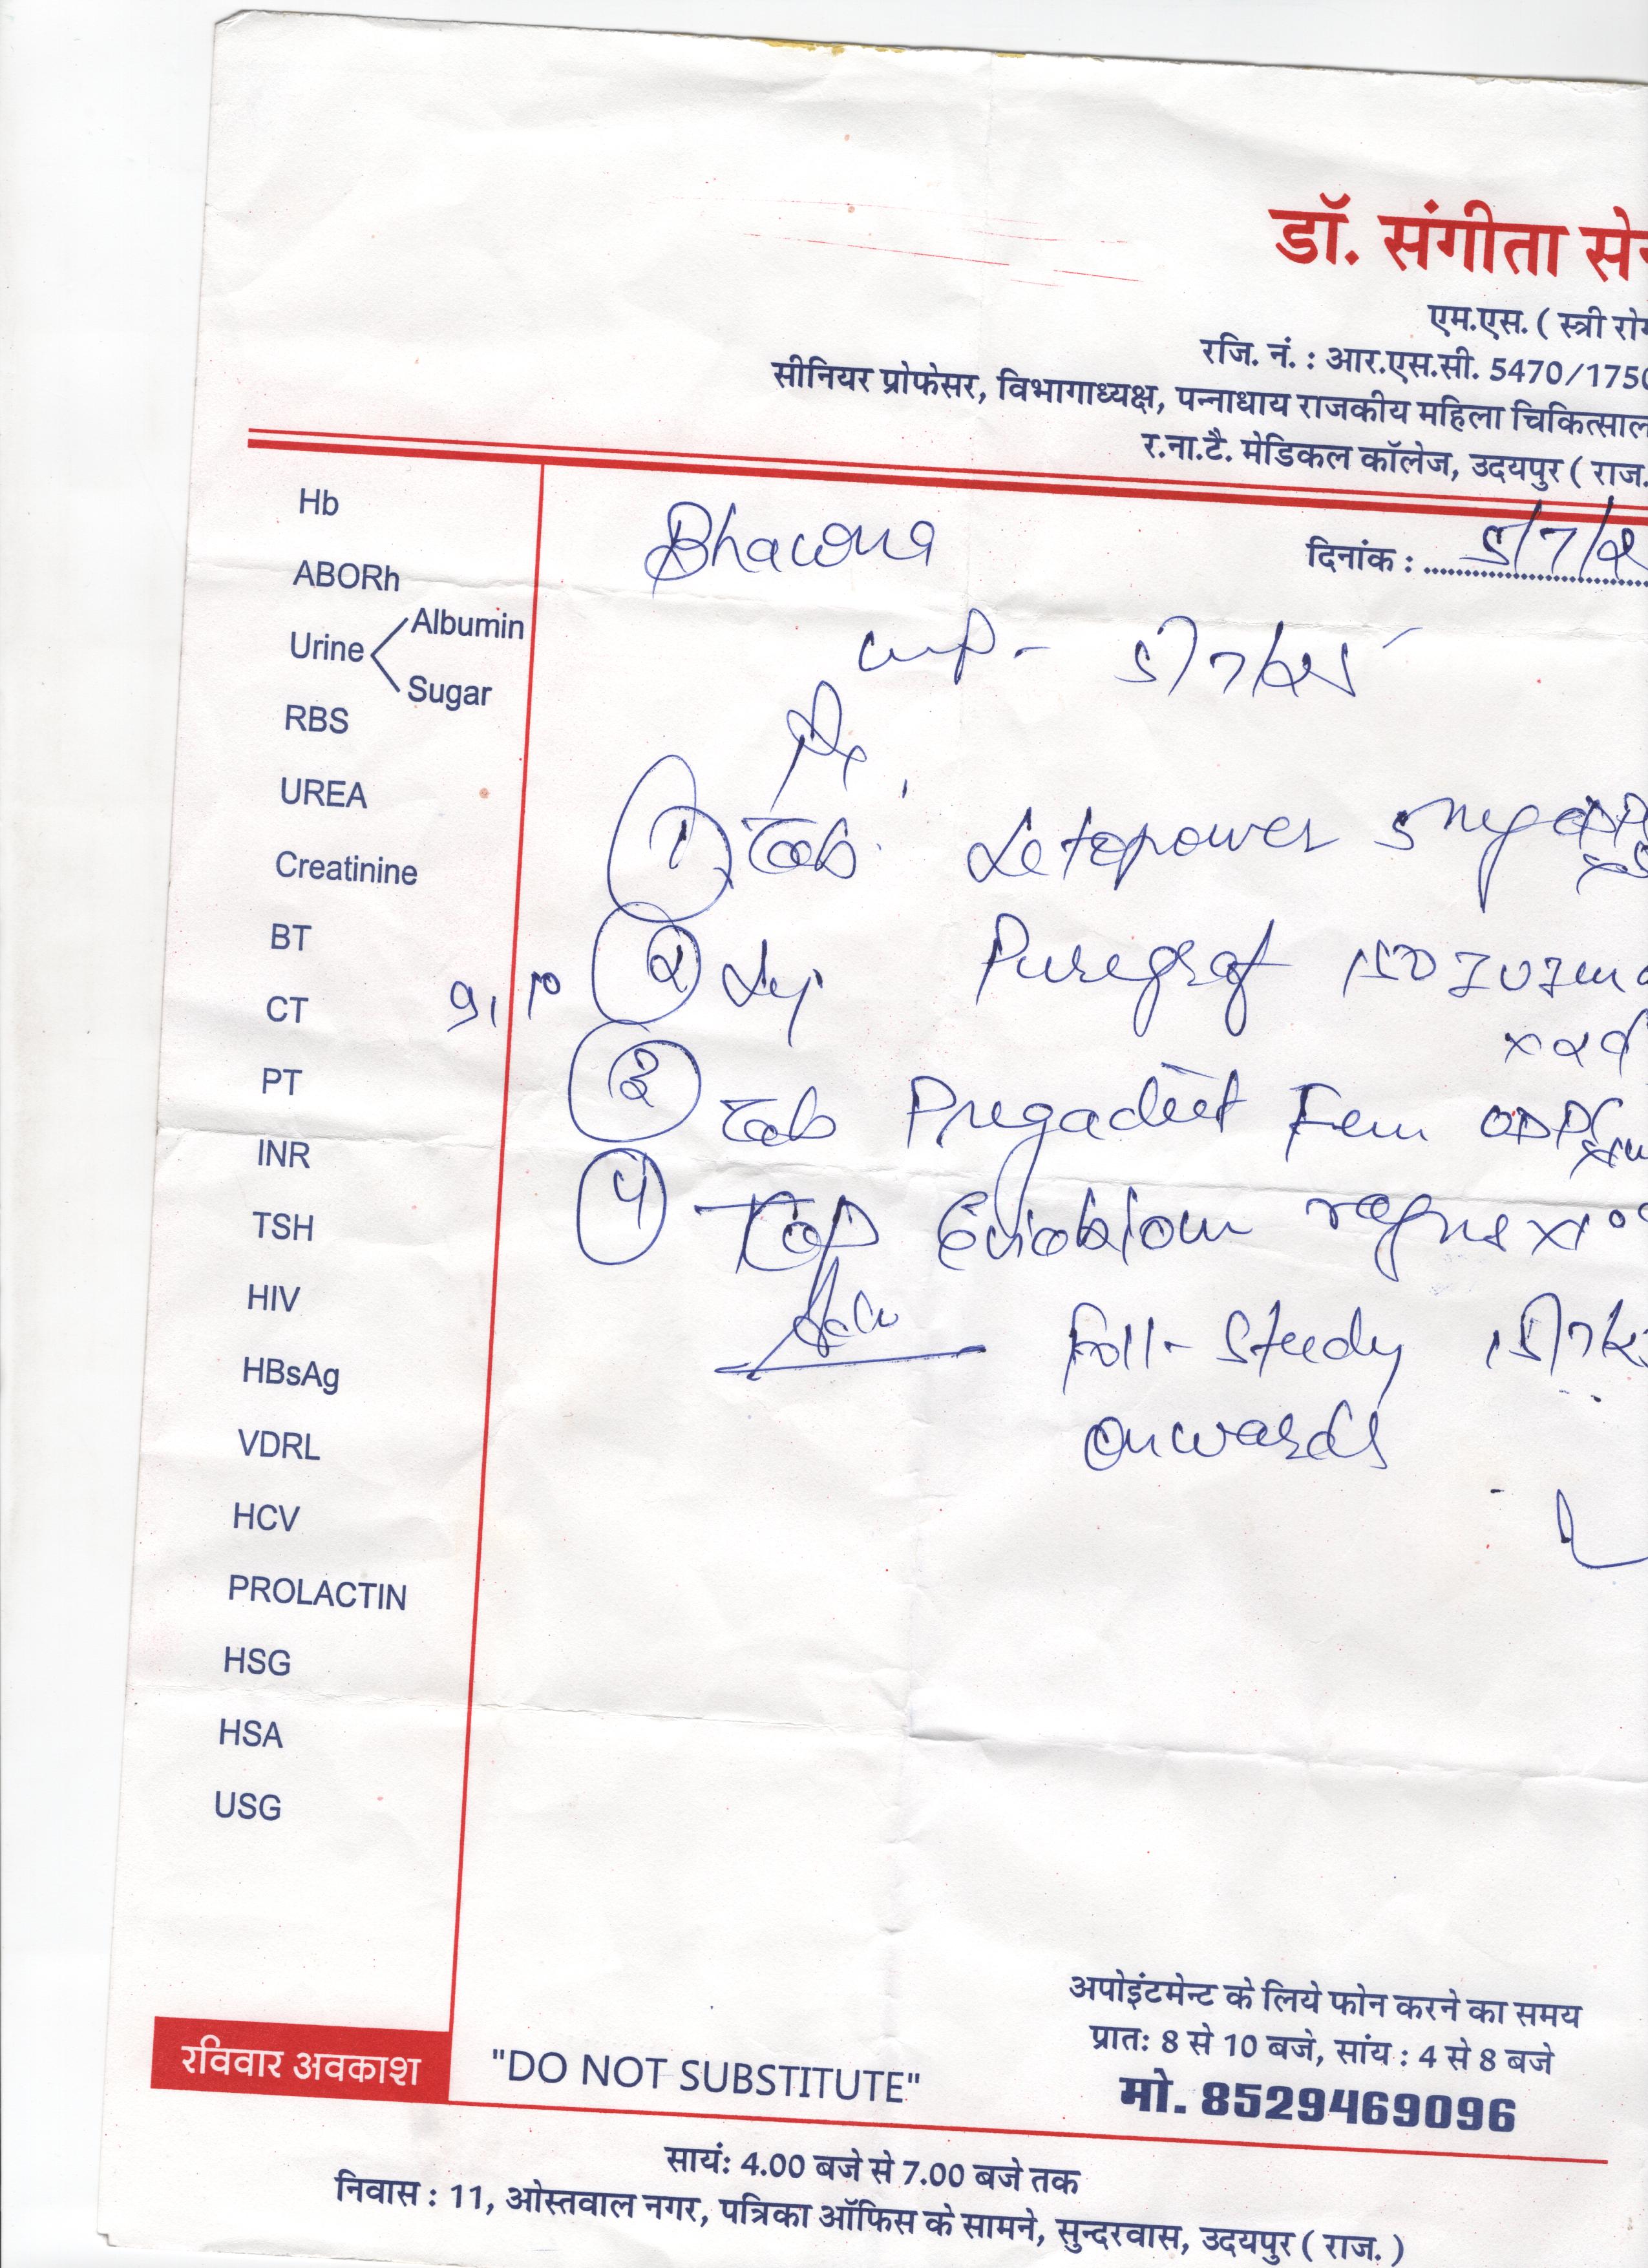 डॉ. संगीता से
एम.एस. ( स्त्री रोग
रजि. नं. : आर.एस.सी. 5470/1750
सीनियर प्रोफेसर, विभागाध्यक्ष, पन्नाधाय राजकीय महिला चिकित्साल
र.ना.टै. मेडिकल कॉलेज, उदयपुर ( राज.
Bhawna
दिनांक : 5/7/2
LMP - 5/7/25
Rx
1 Tab. Letopower 5mg OD
2 Inj Puregraf 150 IU
9, 10
x 2
3 Tab Pregadiet Fem OD
4 Tab
Adv Foll- Study 15/7/2
onwards
Hb
ABORh
Urine
Albumin
Sugar
RBS
UREA
Creatinine
BT
CT
PT
INR
TSH
HIV
HBsAg
VDRL
HCV
PROLACTIN
HSG
HSA
USG
रविवार अवकाश
"DO NOT SUBSTITUTE"
अपोइंटमेन्ट के लिये फोन करने का समय
प्रातः 8 से 10 बजे, सांय : 4 से 8 बजे
मो. 8529469096
सायं: 4.00 बजे से 7.00 बजे तक
निवास : 11, ओस्तवाल नगर, पत्रिका ऑफिस के सामने, सुन्दरवास, उदयपुर ( राज. )